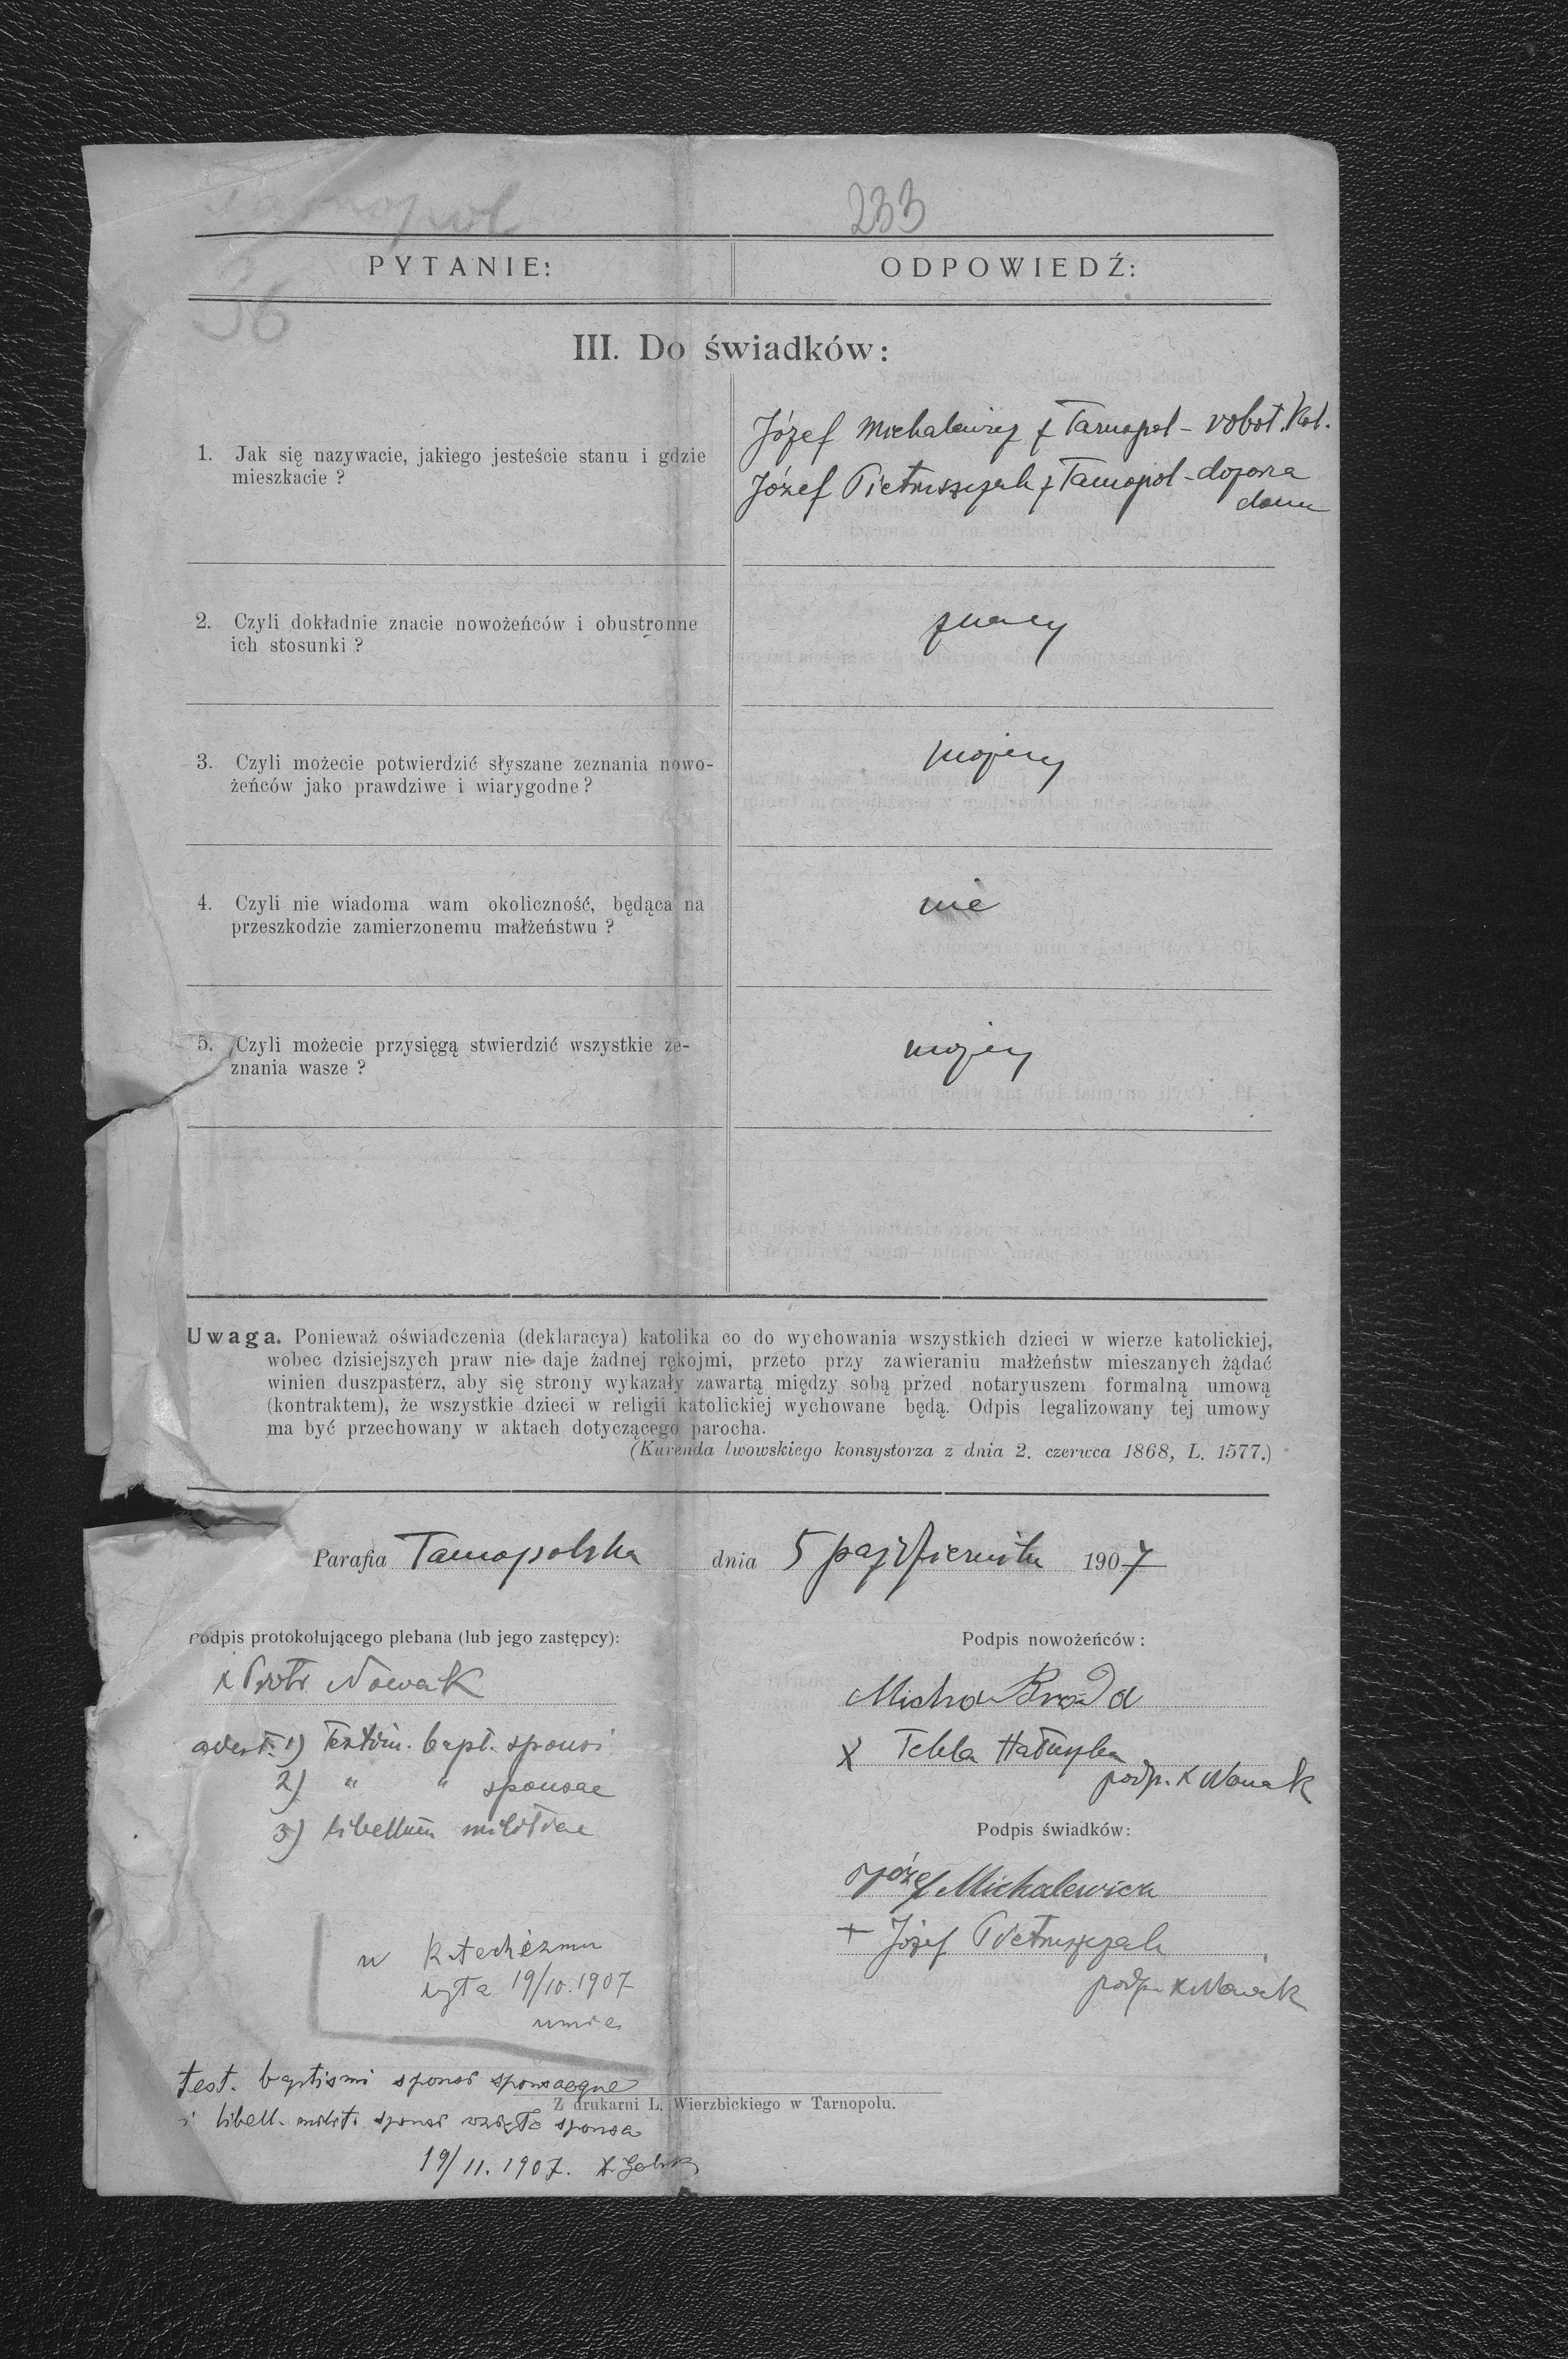 Tarnopol 233
PYTANIE: ODPOWIEDŹ:
36
III. Do świadków:
1. Jak się nazywacie, jakiego jesteście stanu i gdzie
mieszkacie ?
Józef Michalewicz z Tarnopol - robot. kol.
Józef Pietruszczak z Tarnopol - dozorca
domu
2. Czyli dokładnie znacie nowożeńców i obustronne
ich stosunki ?
znamy
3. Czyli możecie potwierdzić słyszane zeznania nowo-
żeńców jako prawdziwe i wiarygodne ?
możemy
4. Czyli nie wiadoma wam okoliczność, będąca na
przeszkodzie zamierzonemu małżeństwu ?
nie
5. Czyli możecie przysięgą stwierdzić wszystkie ze-
znania wasze ?
możemy
Uwaga. Ponieważ oświadczenia (deklaracya) katolika co do wychowania wszystkich dzieci w wierze katolickiej,
wobec dzisiejszych praw nie daje żadnej rękojmi, przeto przy zawieraniu małżeństw mieszanych żądać
winien duszpasterz, aby się strony wykazały zawartą między sobą przed notaryuszem formalną umową
(kontraktem), że wszystkie dzieci w religii katolickiej wychowane będą. Odpis legalizowany tej umowy
ma być przechowany w aktach dotyczącego parocha.
(Kurenda lwowskiego konsystorza z dnia 2. czerwca 1868, L. 1577.)
Parafia Tarnopolska dnia 5 października 1907
Podpis protokołującego plebana (lub jego zastępcy):
X Piotr Nowak
advert. 1) Testim. bapt. sponsi
2) " " sponsae
3) libellum militiae
Podpis nowożeńców :
Michał Brozda
X Tekla Hałuszka
podp. X Nowak
Podpis świadków:
Józef Michalewicz
+ Józef Pietruszczak
podp. X Nowak
w Katechizmu
19/10. 1907
umie
test. baptismi sponsi sponsaeque
i libell. milit. sponsi wzięła sponsa
19/11. 1907.
Z drukarni L. Wierzbickiego w Tarnopolu.